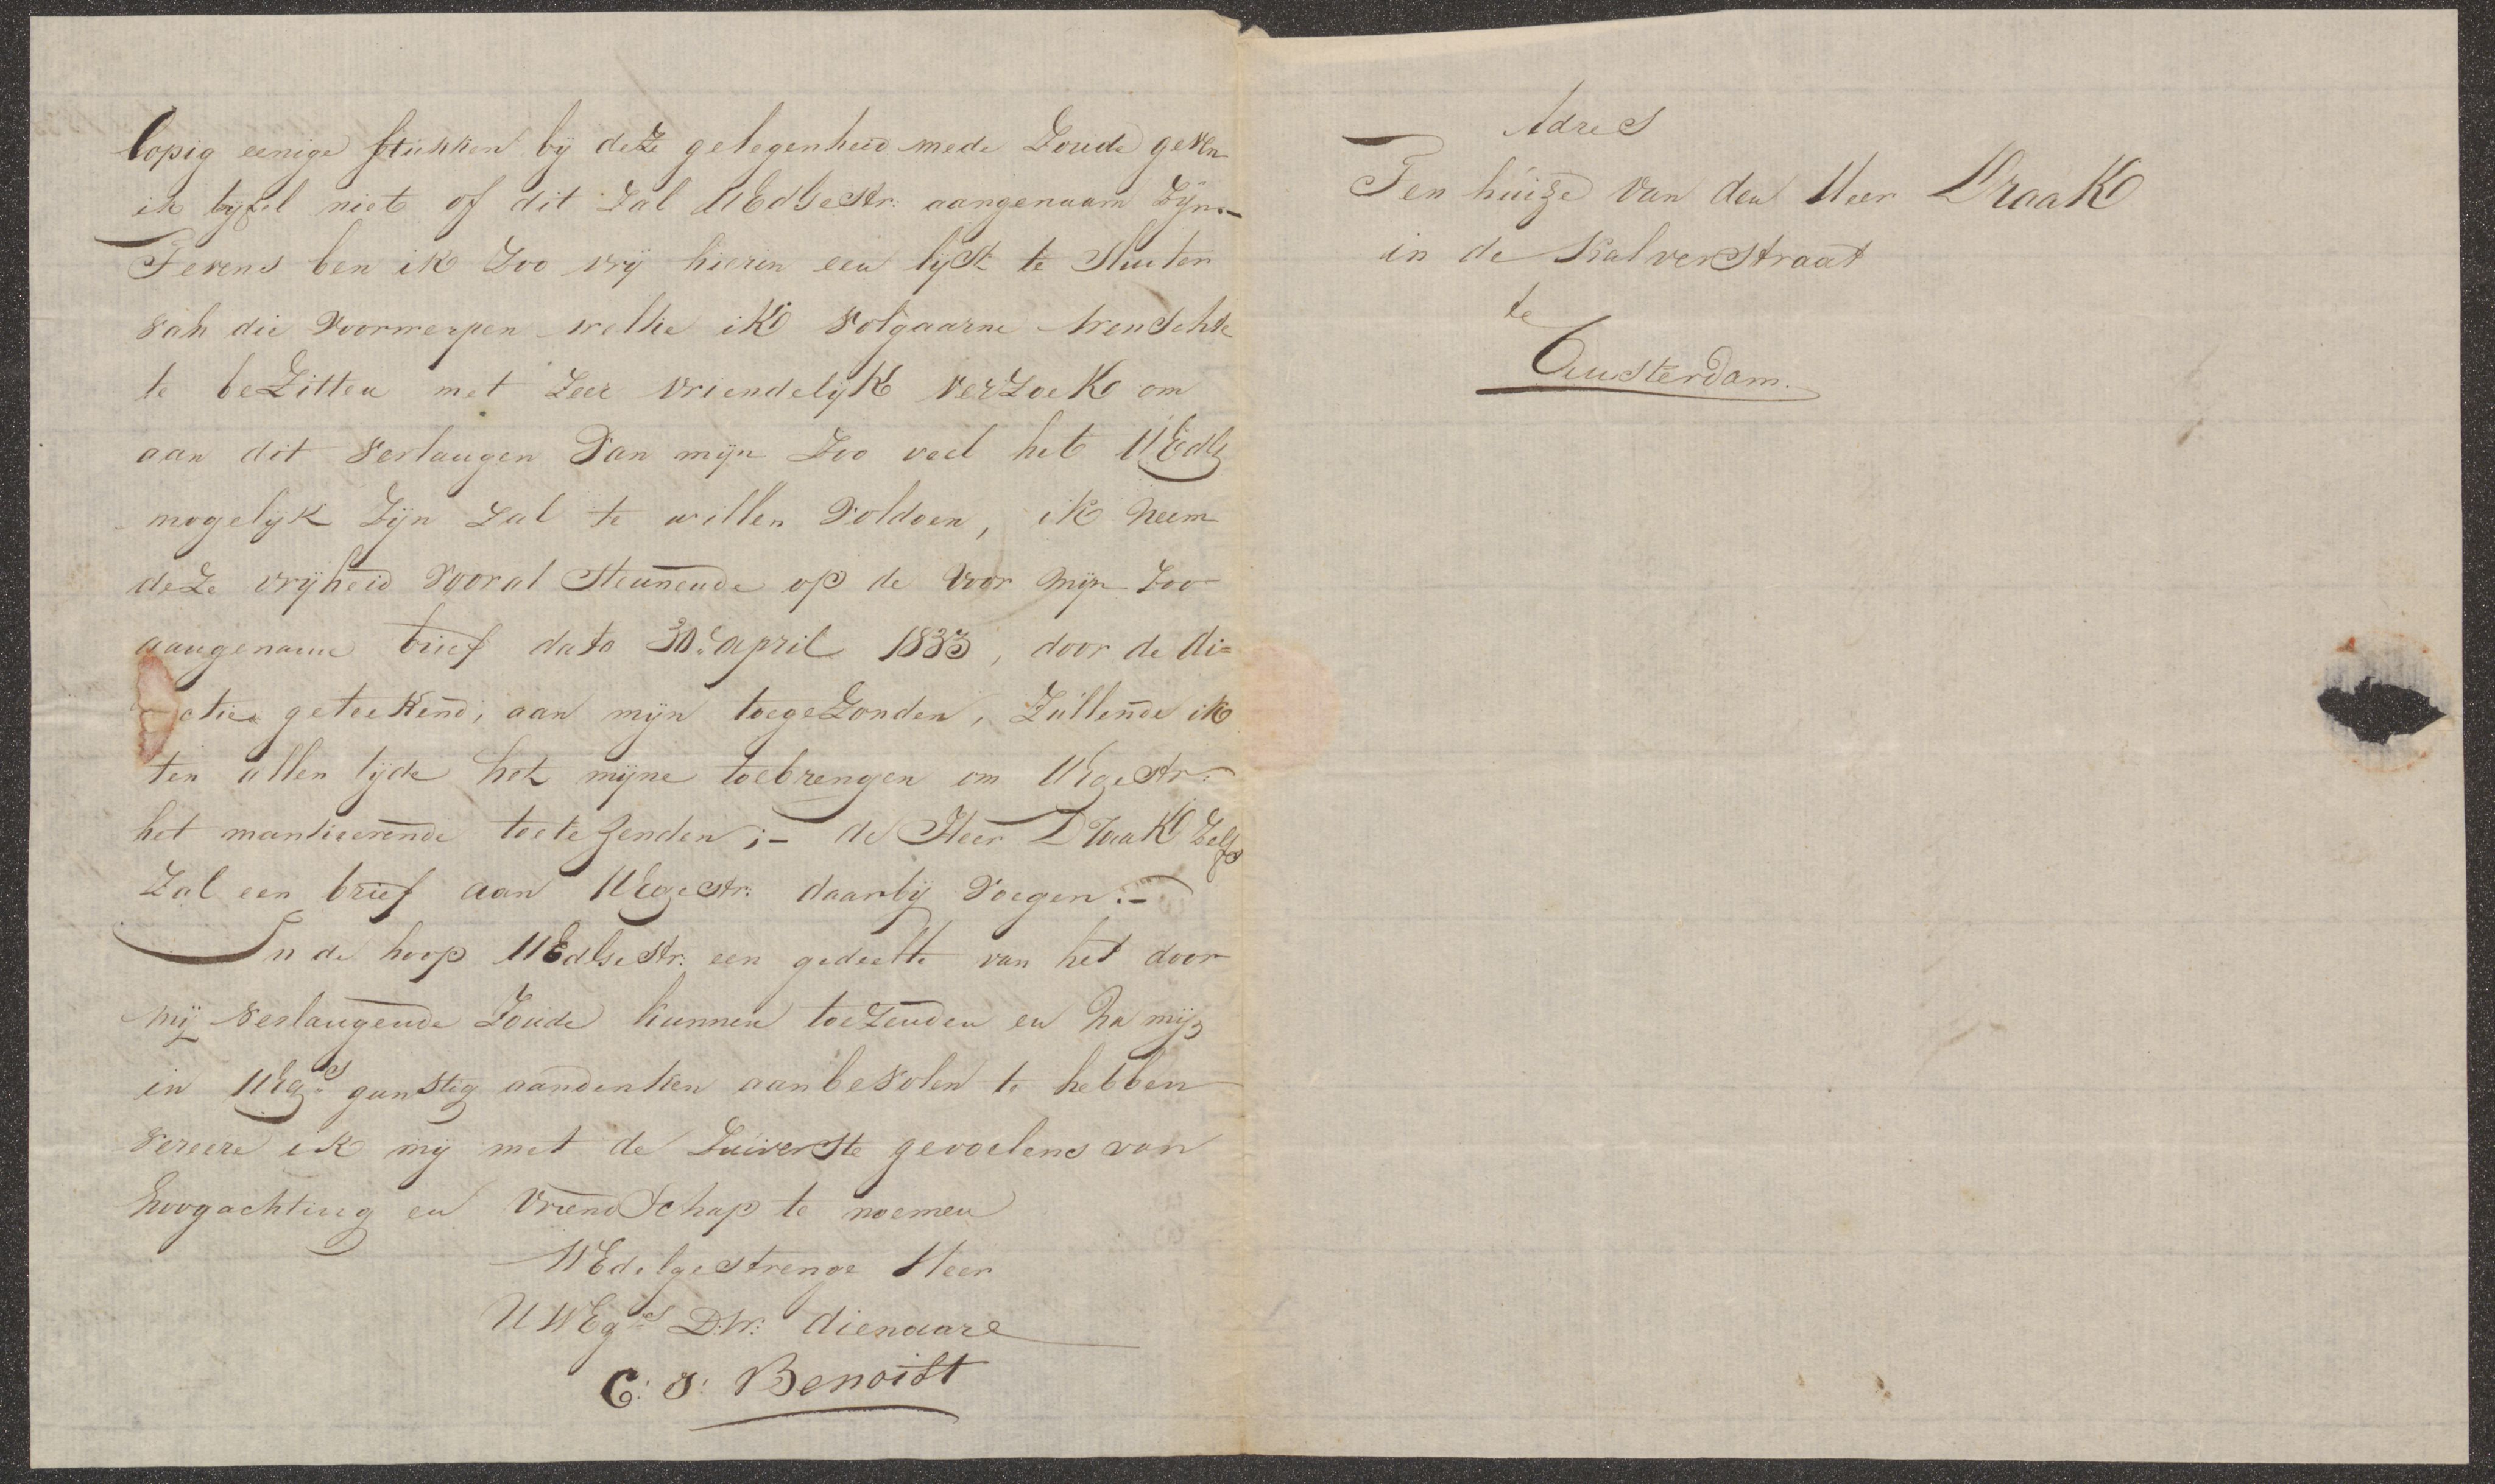 lopig eenige stukken bij deze gelegenheid mede Zoude geven
ik tyfel niet of dit Zal UEdlgestr: aangenaam Zijn.-
Tevens ben ik Zoo vrij hierin een lijst te sluiten
van die voorwerpen welke ik volgaarne wenschte
te beZitten met Zeer vriendelijk verZoek om
aan dit verlangen van mijn Zoo veel het UEdlg
mogelijk Zijn Zal te willen voldoen, ik neem
deZe vrijheid vooral steunende op de voor mijn Zoo
aangename brief dato 30e april 1833, door de di=
ctie geteekend, aan mijn toegeZonden, Zullende ik
ten allen tijde het mijne toebrengen om UEgestr:
het mankeerende toetezenden;- de Heer Draak Zelfs
Zal een brief aan UEgestr: daarbij voegen.-
In de hoop UEdlgestr: een gedeelte van het door
mij verlangende Zoude kunnen toeZenden en na mij
in UEgs gunstig aandenken aanbevolen te hebben
vereere ik mij met de Zuiverste gevoelens van
hoogachting en vriendschap te noemen
WEdelgestrenge Heer
UWEgs D:W: dienaare
C: J: Benoist
Adres
Ten huize van den Heer Draak
in de Kalverstraat
te
Amsterdam.